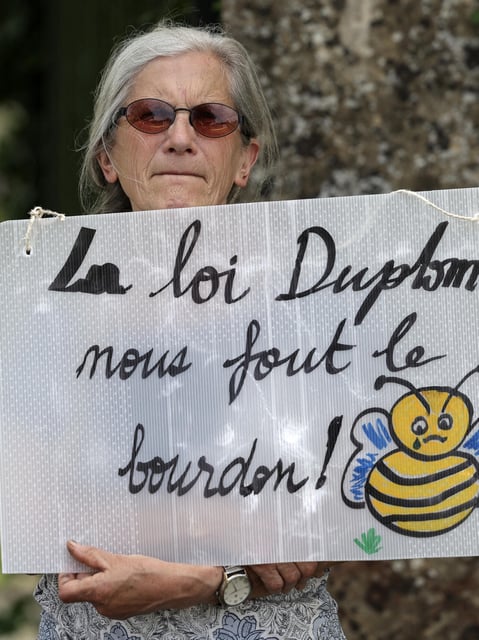 La loi Duplom
nous fout le
bourdon !